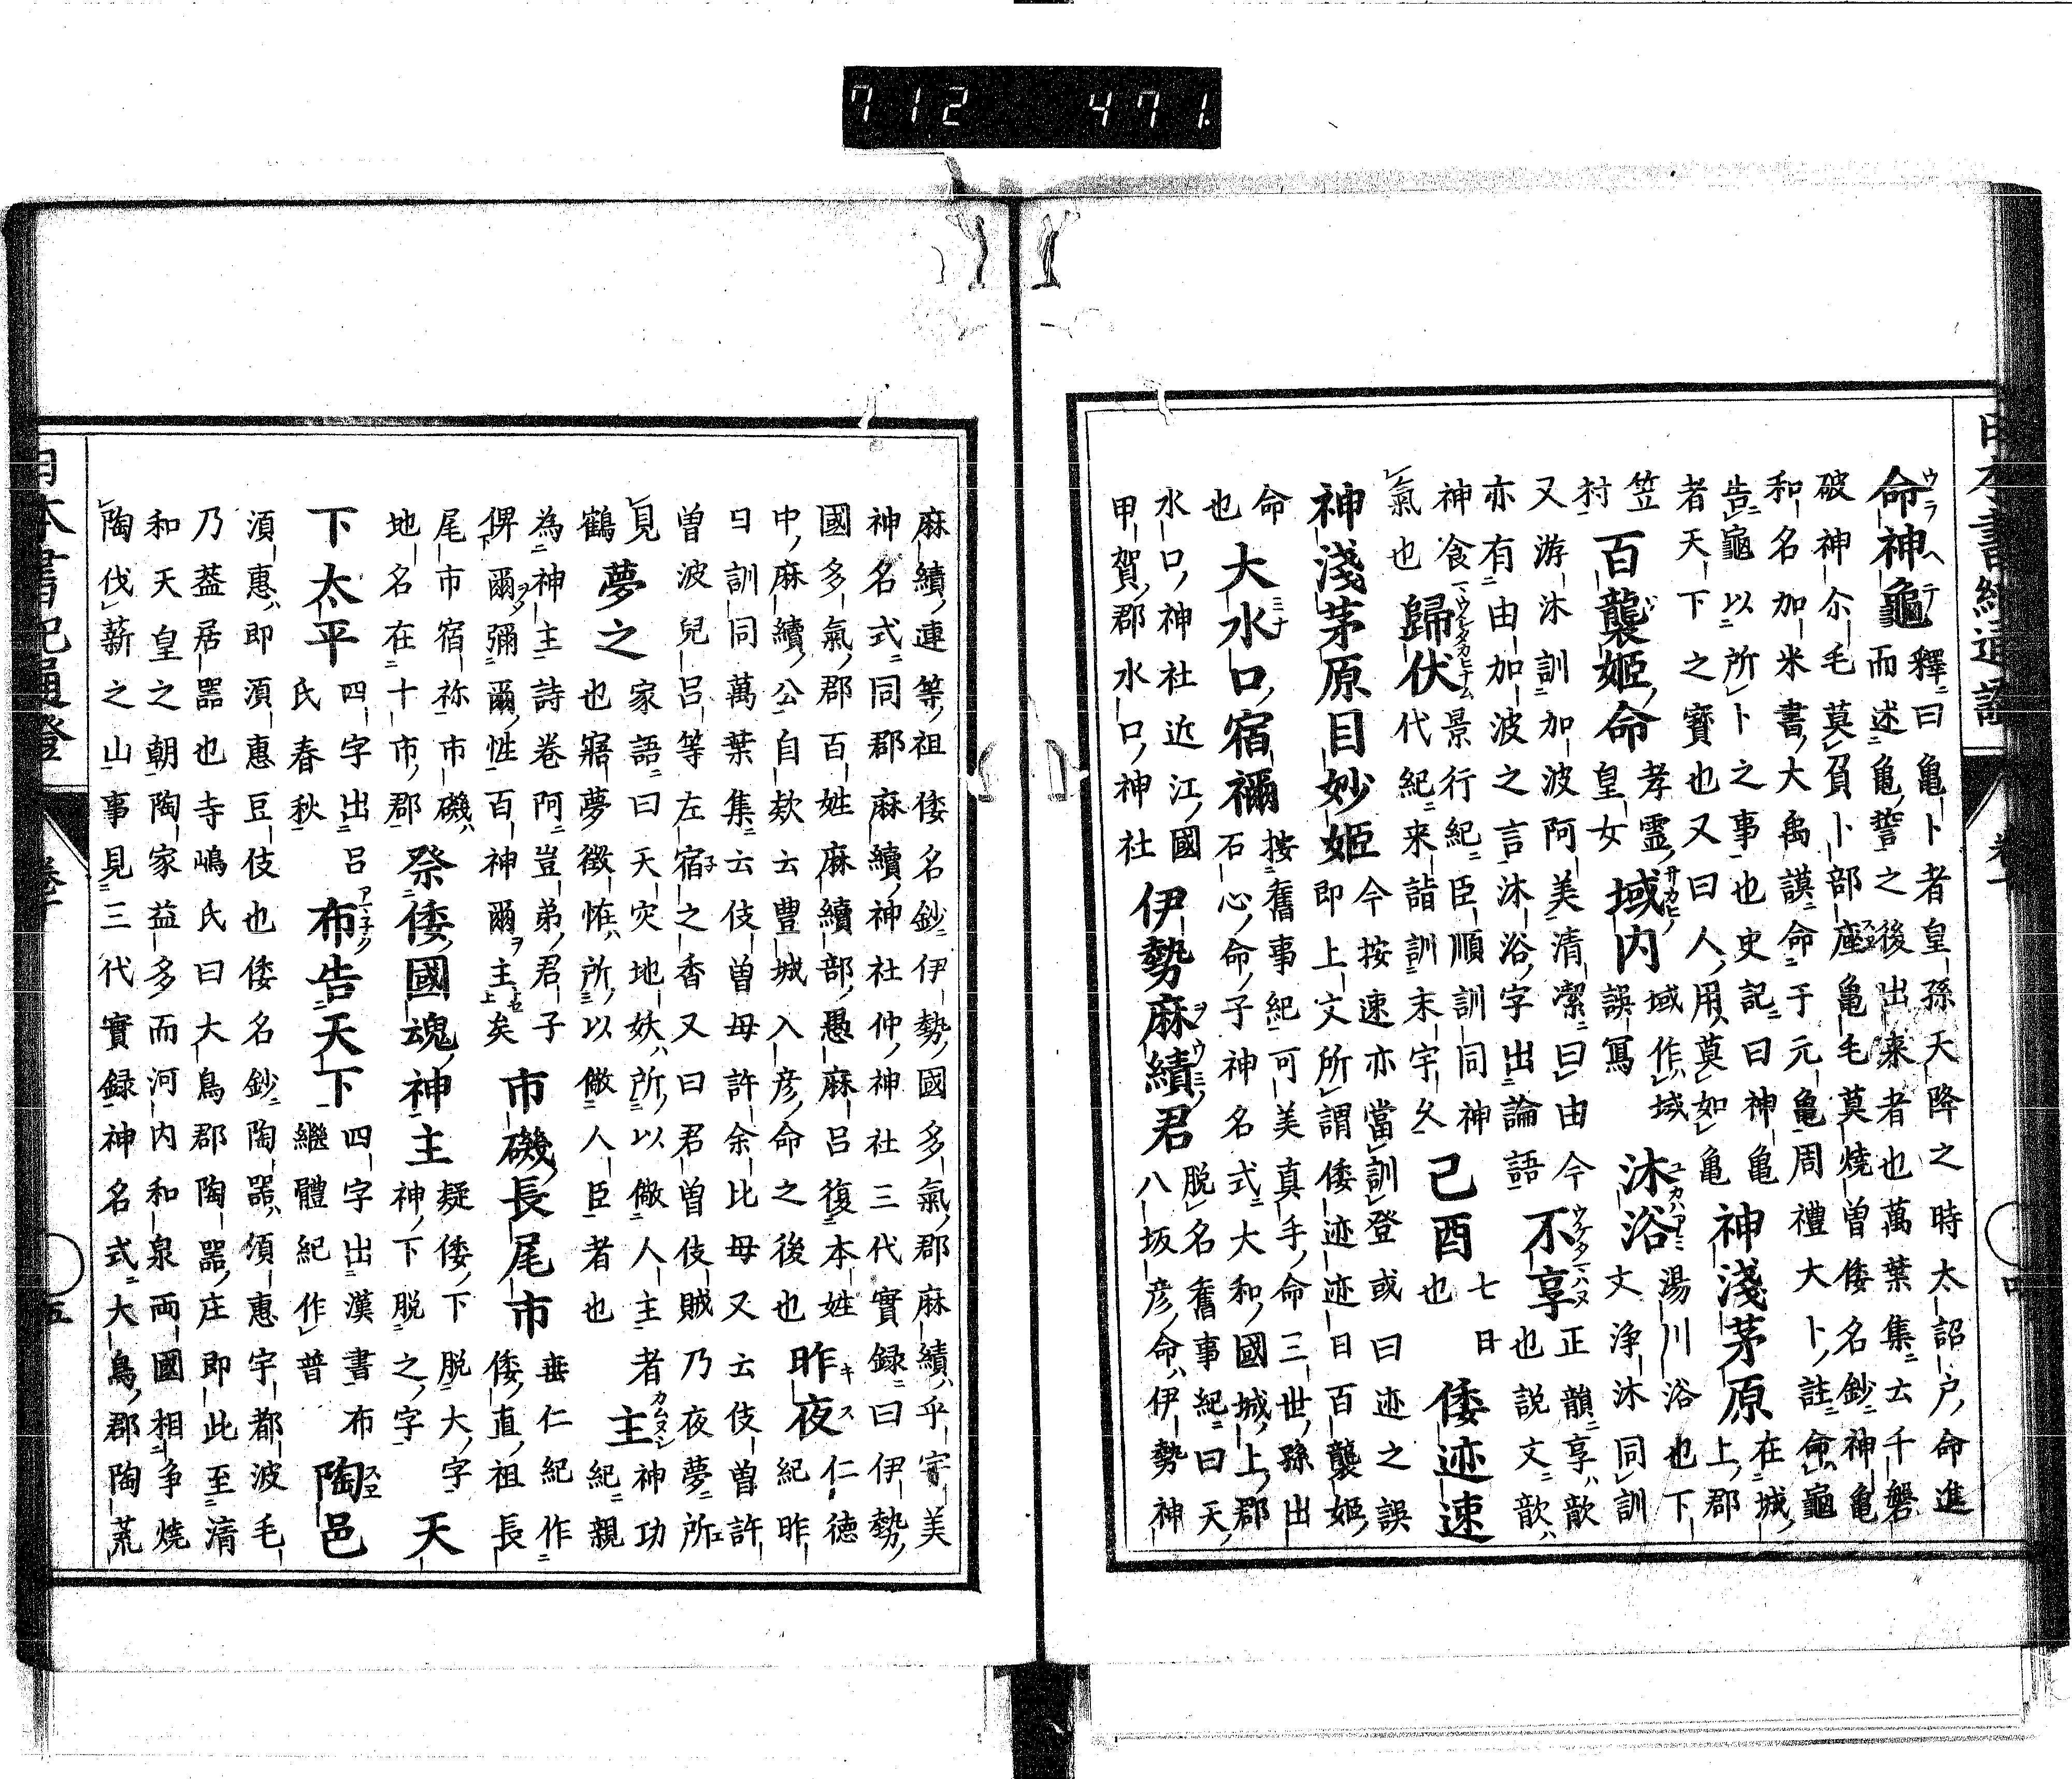 命神龜 釋曰亀卜者皇孫天降之時太詔戸命進
而述亀誓之後出来者也萬葉集云千磐
破神尒毛莫負卜部座亀毛莫焼曽倭名鈔神亀
和名加米書大禹謨命于元亀周禮大卜註命龜
告龜以所卜之事也史記曰神亀
者天下之寳也又曰人用莫如亀 神淺茅原 在城
上郡
笠
村 百襲姫命 孝霊
皇女 域内 域作域
誤寫 沐浴 湯川浴也下
文浄沐同訓
又游沐訓加波阿美清潔曰由今
亦有由加波之言沐浴字出論語 不享 正韻享歆
也説文歆
神食
氣也 歸伏 景行紀臣順訓同神
代紀来詣訓末宇久 己酉 七日
也 倭迹速
神淺茅原目妙姫 今按速亦當訓登或曰迹之誤
即上文所謂倭迹迹日百襲姫
命
也 大水口宿禰 按舊事紀可美真手命三世孫出
石心命子神名式大和國城上郡
水口神社近江國
甲賀郡水口神社 伊勢麻績君 脱名舊事紀曰天
八坂彦命伊勢神
四
麻績連等祖倭名鈔伊勢國多氣郡麻績乎宇美
神名式同郡麻續神社仲神社三代實録曰伊勢
國多氣郡百姓麻續部愚麻呂復本姓
中麻續公自欵云豊城入彦命之後也 昨夜 仁徳
紀昨
曰訓同萬葉集云伎曽母許余比母又云伎曽許
曽波兒呂等左宿之香又曰君曽伎賊乃夜夢所
見
鶴 夢之 家語曰天灾地妖所以儆人主者
也寤夢徴恠所以儆人臣者也 主 神功
紀親
為神主詩卷阿豈弟君子
俾爾彌爾性百神爾主矣 市磯長尾市 垂仁紀作
倭直祖長
尾市宿祢市磯
地名在十市郡 祭倭國魂神主 疑倭下脱大字
神下脱之字 天
下太平 四字出呂
氏春秋 布告天下 四字出漢書布
繼體紀作普 陶邑
湏惠即湏惠豆伎也倭名鈔陶器須惠宇都波毛
乃葢居噐也寺嶋氏曰大鳥郡陶噐庄即此至清
和天皇之朝陶家益多而河内和泉両國相争焼
陶伐薪之山事見三代實録神名式大鳥郡陶荒
五
712 471